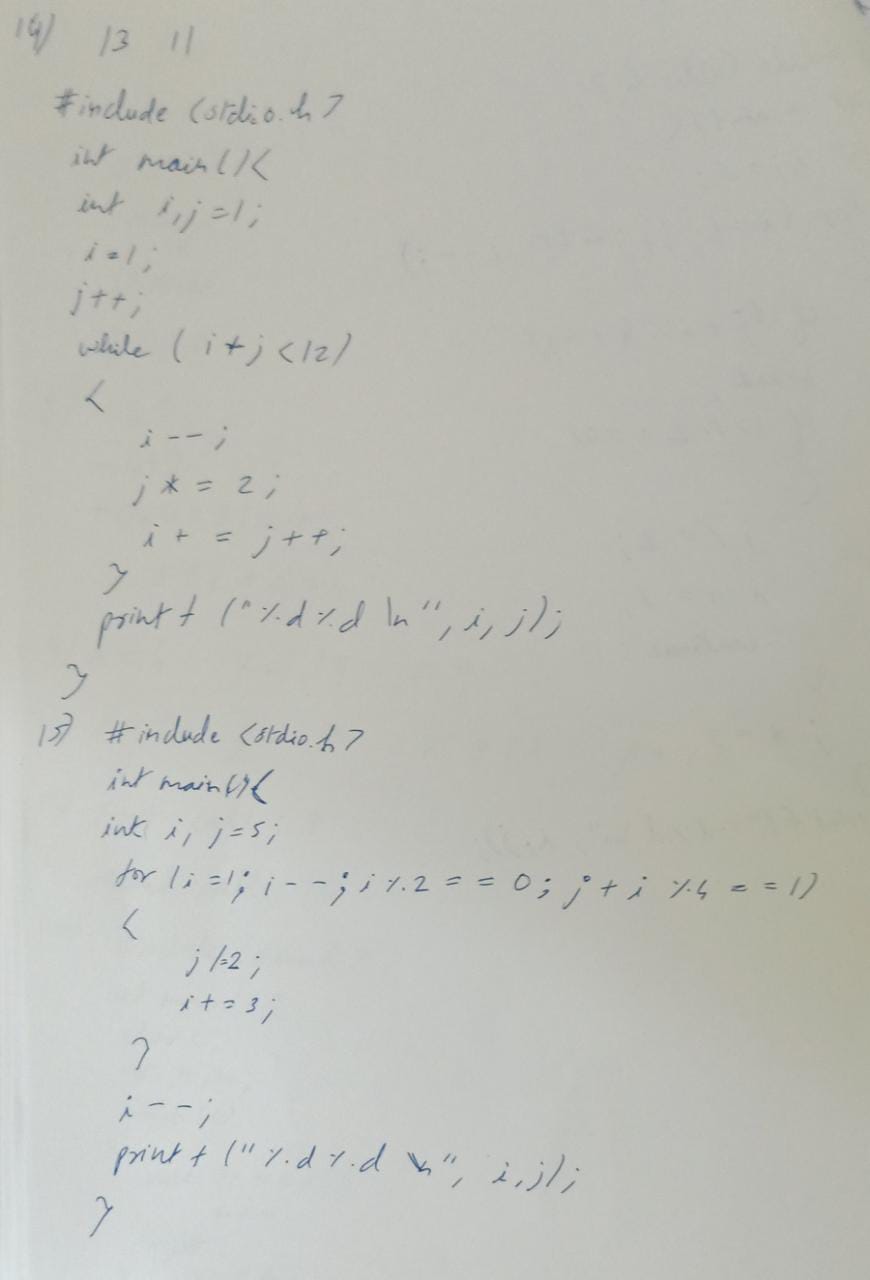 14) 13 11
#include <stdio.h>
int main(){
int i,j=1;
i=1;
j++;
while (i+j<12)
{
i--;
j*=2;
i+=j++;
}
printf("%d%d\n", i, j);
}
15) #include <stdio.h>
int main(){
int i, j=5;
for (i=1; i--; i%2==0; j+i%4==1)
{
j/=2;
i+=3;
}
i--;
printf("%d%d\n", i,j);
}